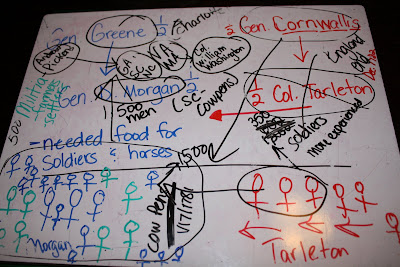 Gen. Greene 1/2
Charlotte
1/2 Gen. Cornwallis
Andrew Pickens
GA
SC
NC
VA
MA
Col. William Washington
Gen. Morgan 1/2
500 men
(SC-
Cowpens
1/2 Col. Tarleton
500 Militia
- needed food for
soldiers & horses
1500
soldiers
more experienced
Cow Pens
1/17/1781
Morgan
Tarleton